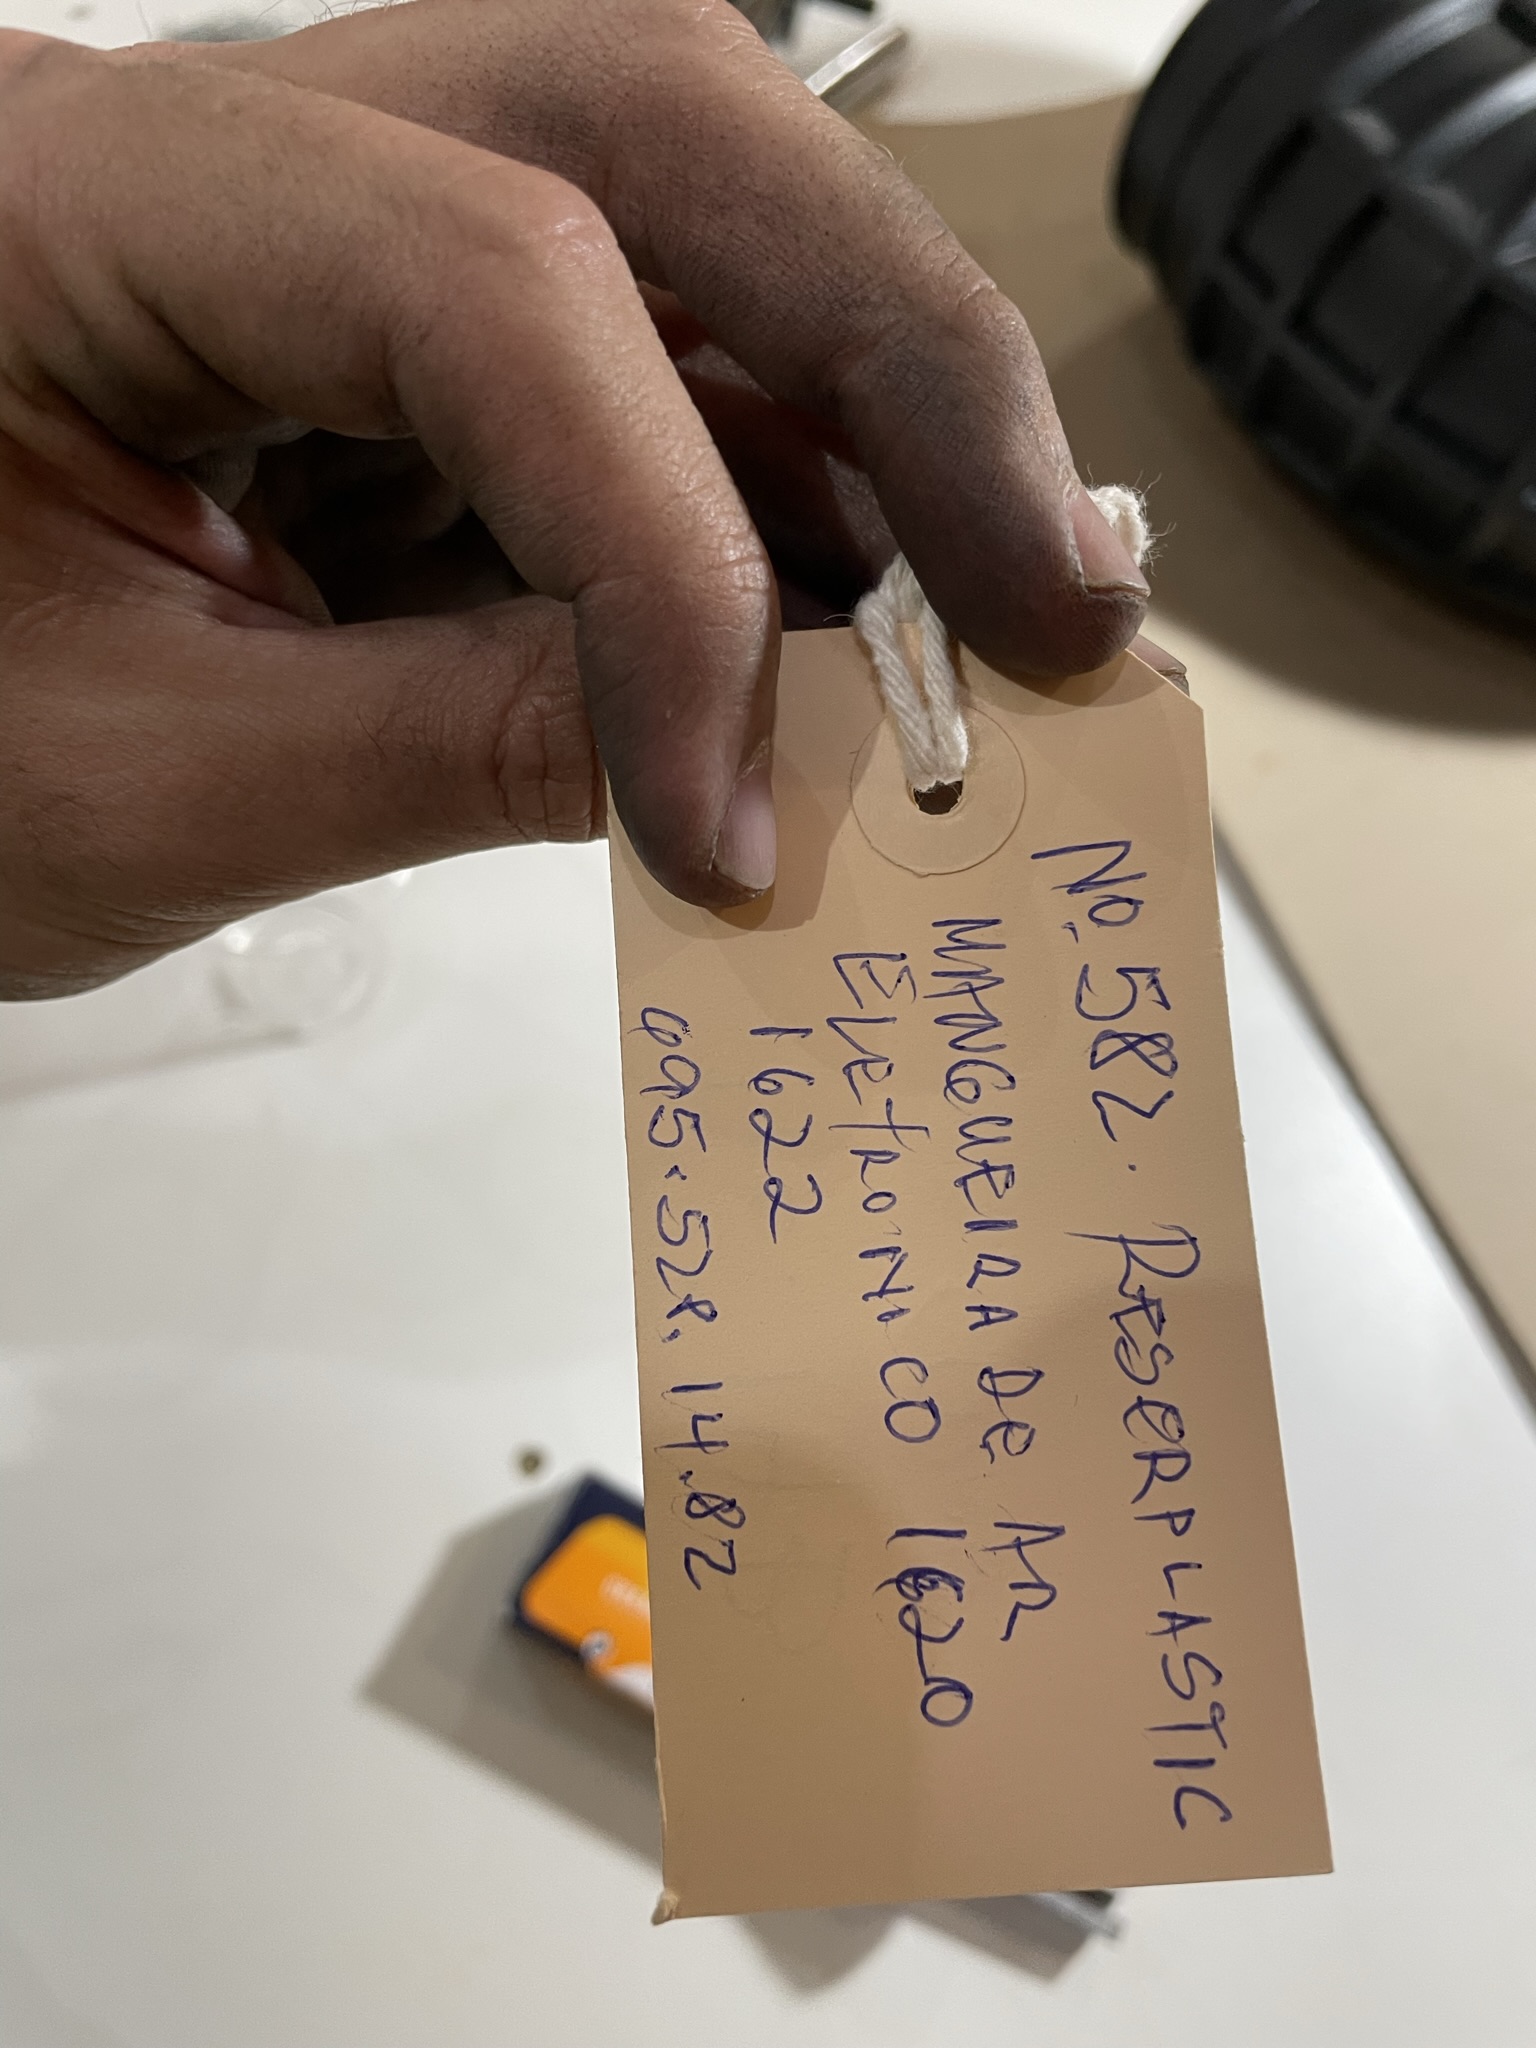 No. 582. RESERPLASTIC
MANGUEIRA DE AR
ELETRONICO 1620
1622
695.528.14.82